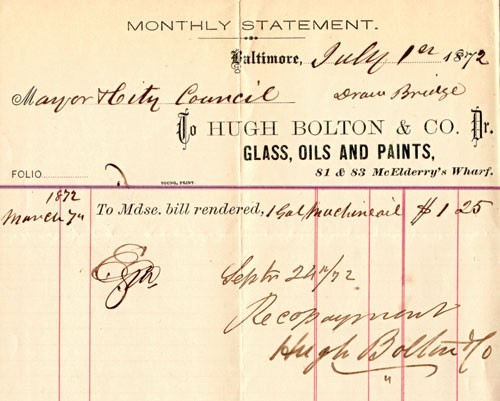 MONTHLY STATEMENT.
Baltimore, July 1st 1872
Mayor & City Council Draw Bridge
To HUGH BOLTON & CO. Dr.
GLASS, OILS AND PAINTS,
81 & 83 McElderry's Wharf.
FOLIO
YOUNG, PRINT
1872
March 7th To Mdse. bill rendered, 1 Gal Machine oil $1 25
Septr 24th/72
Rec payment
Hugh Bolton & Co